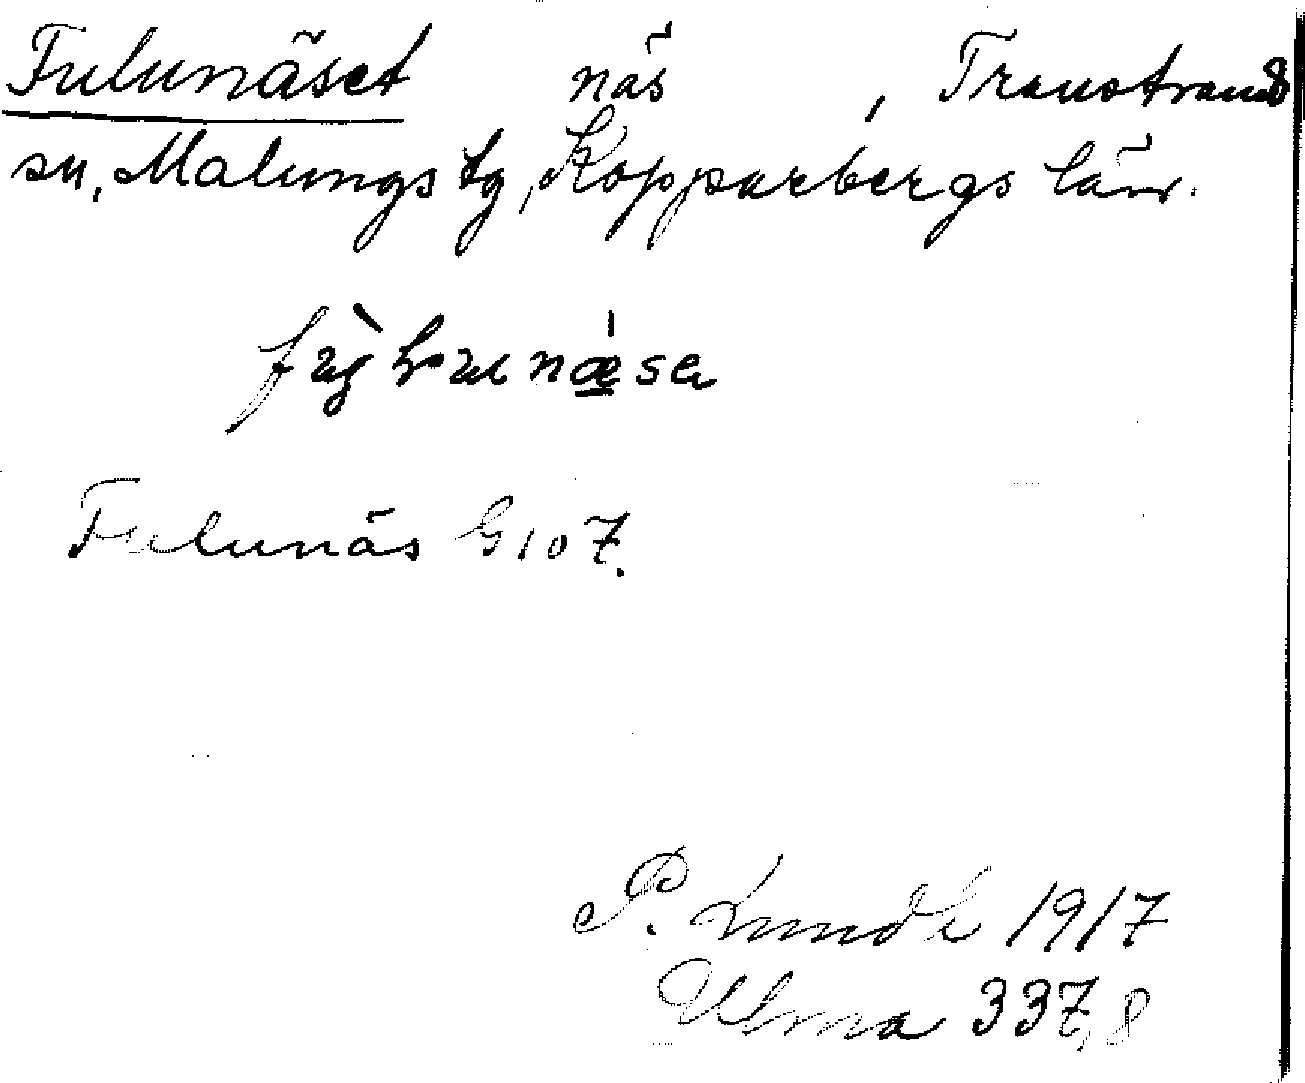 Fulunäset näs , Transtrands
sn, Malungs tg, Kopparbergs län.
Fulunäs G 107.
P. Lundk 1917
Ulma 337,8